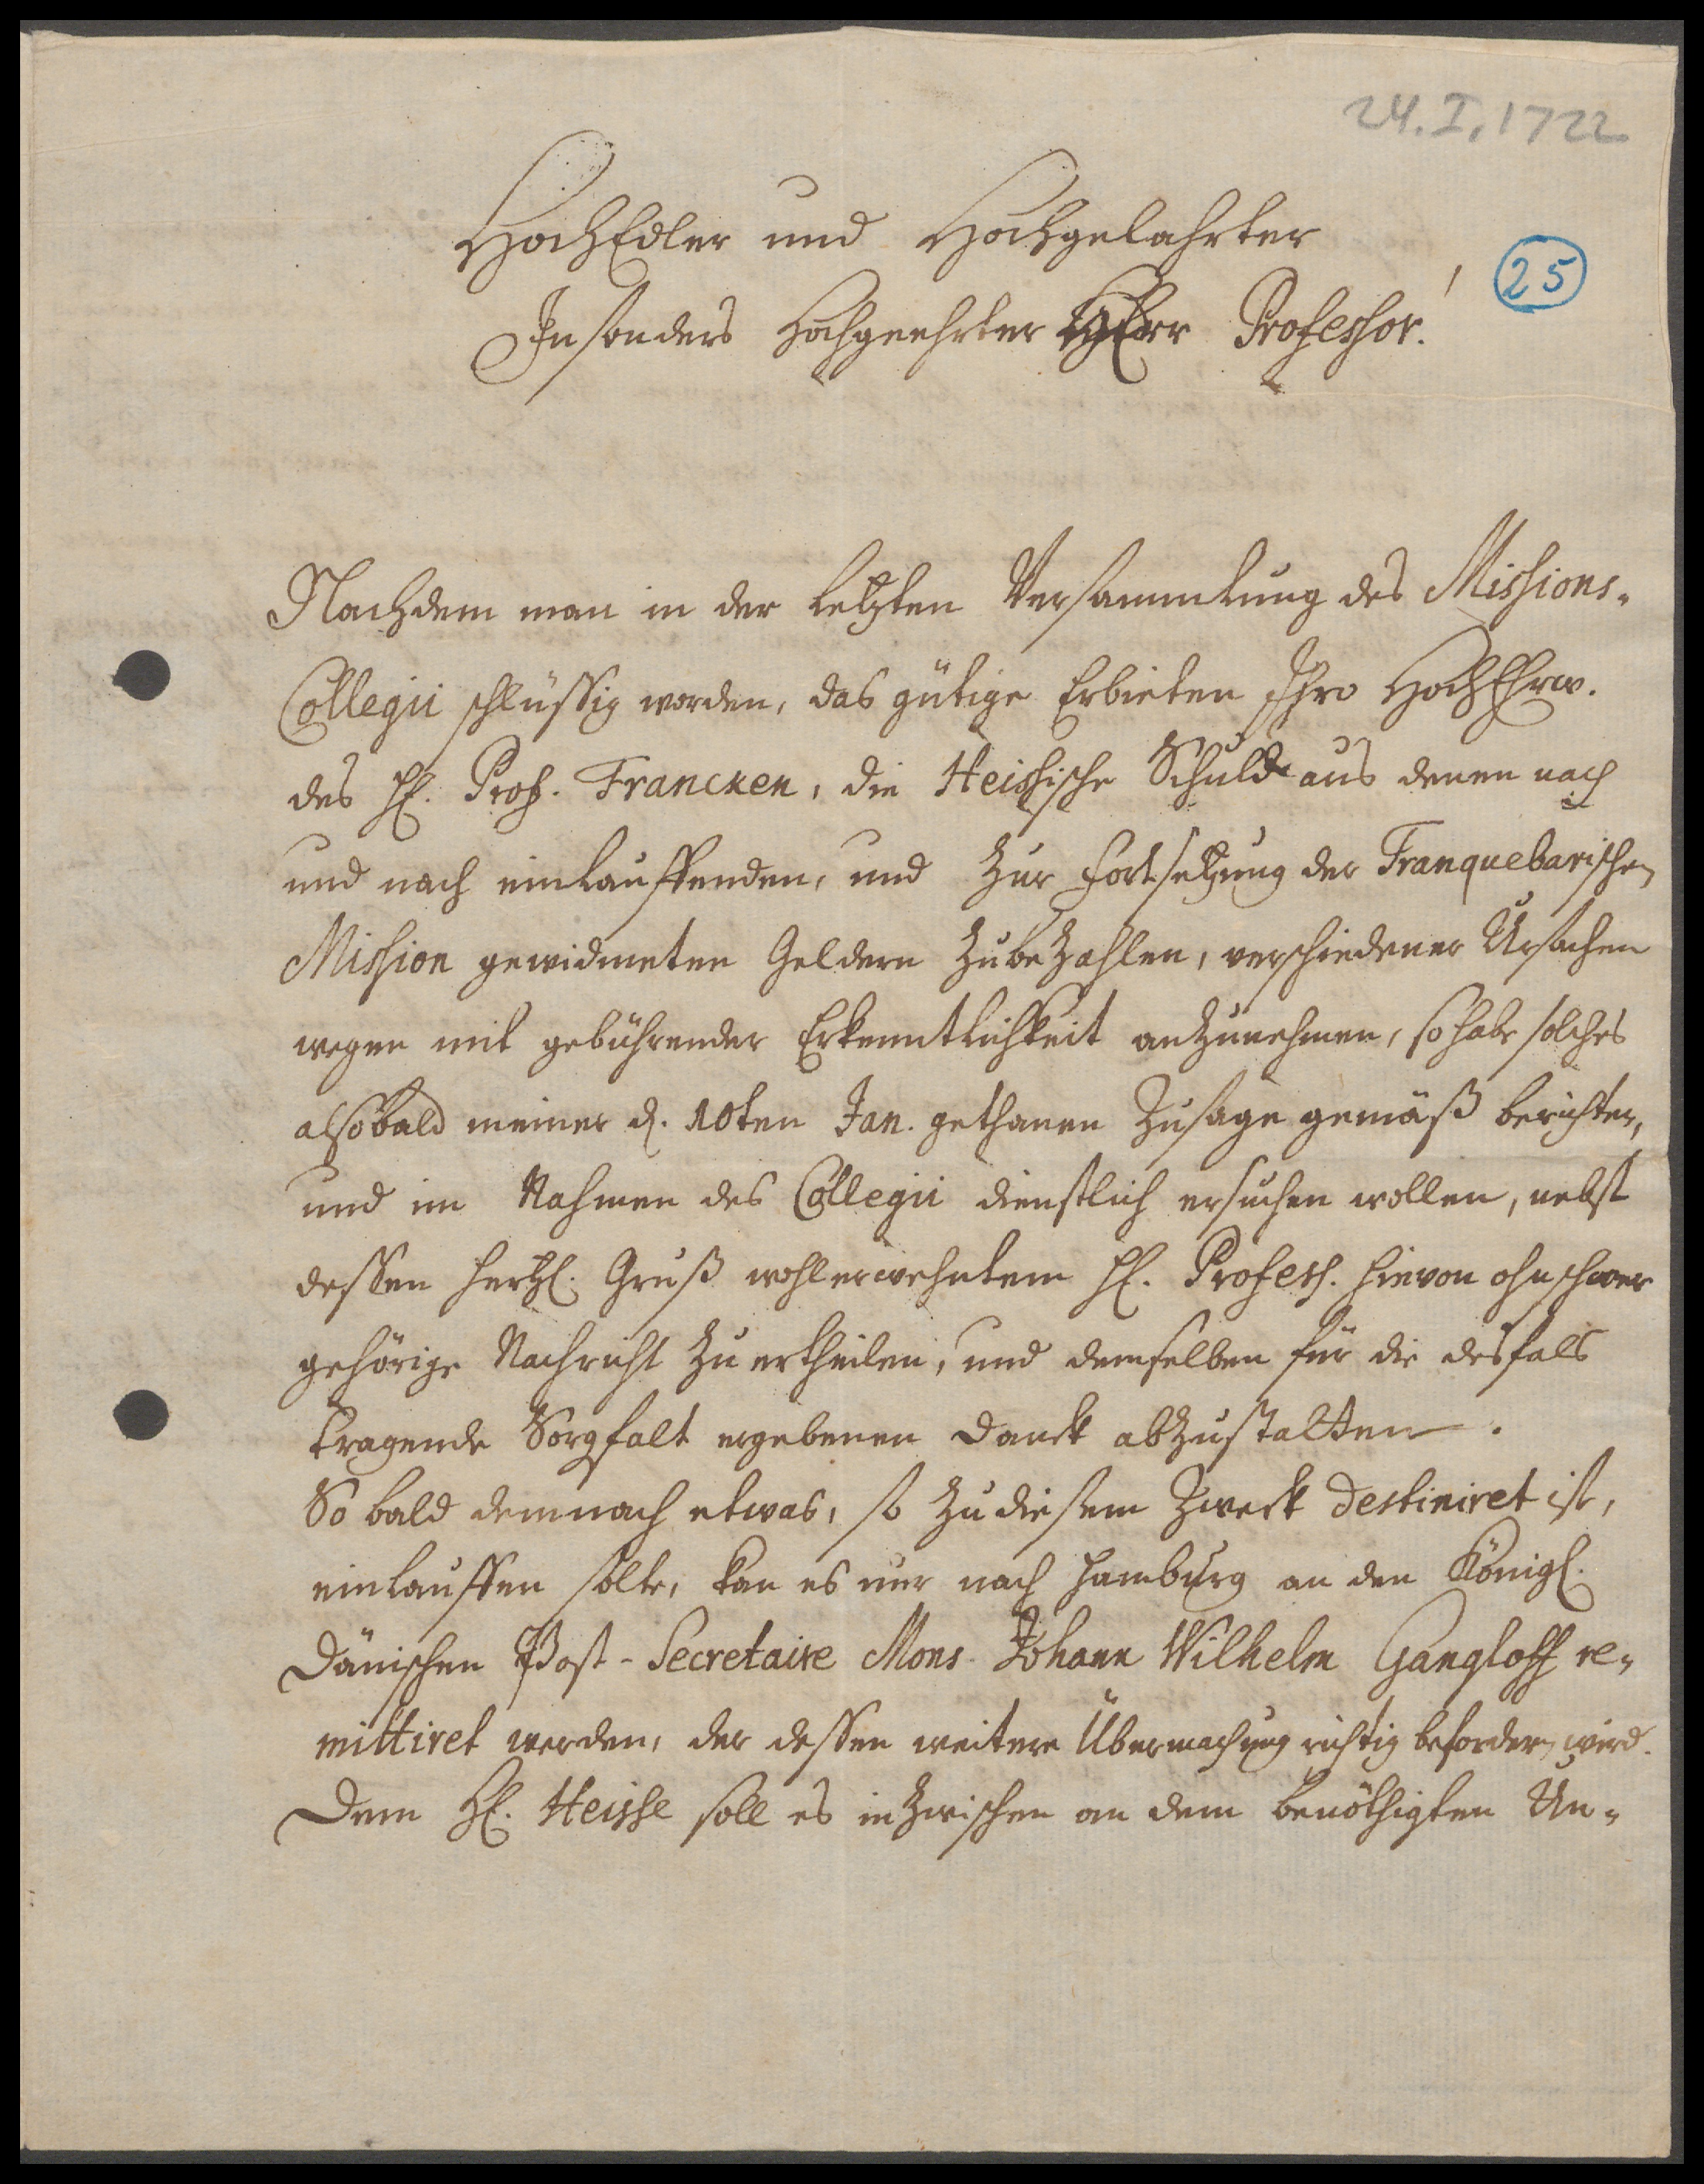 24. I. 1722
HochEdler und Hochgelahrter
25
Insonders Hochgeehrter HErr Professor!
Nachdem man in der letzten Versammlung des Missions-
Collegii schlüssig worden, das gütige Erbieten Ihro HochEhrw.
des H. Prof. Francken, die Heissische Schuld aus denen nach
und nach einlauffenden, und zur Fortsetzung der Tranquebarischen
Mission gewidmeten Geldern zubezahlen, verschiedener Ursachen
wegen mit gebührender Erkenntlichkeit anzunehmen, so habe solches
alsobald meiner d. 10ten Jan. gethanen Zusage gemäß berichten,
und im Nahmen des Collegii dienstlich ersuchen wollen, nebst
dessen hertzl. Gruß wohlerwehntem H. Profess. hievon ohnschwer
gehörige Nachricht zu ertheilen, und demselben für die desfals
tragende Sorgfalt ergebenen Danck abzustatten.
So bald demnach etwas, so zu diesem Zweck destiniret ist,
einlauffen solte, kan es nur nach Hamburg an den Königl.
Dänischen Post-Secretaire Mons. Johann Wilhelm Gangloff re-
mittiret werden, der dessen weitere Übermachung richtig befordern wird.
Dem H. Heisse soll es inzwischen an dem benöthigten Un-